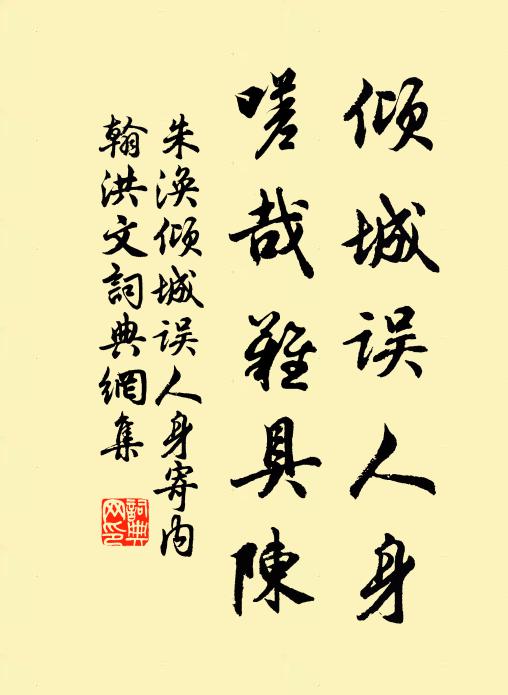 倾城误人身
嗟哉難具陳
朱涣倾城误人身寄内
翰洪文詞典網集
詞典网印